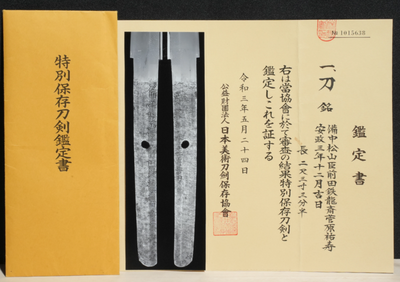 特別保存刀剣鑑定書
№ 1015638
鑑定書
一、刀 銘
備中松山臣前田鉄龍斎菅原祐寿
安政三年十二月吉日
長 二尺三寸三分半
右は當協會に於て審査の結果特別保存刀剣と
鑑定しこれを証する
令和三年五月二十四日
公益財團法人 日本美術刀劍保存協會